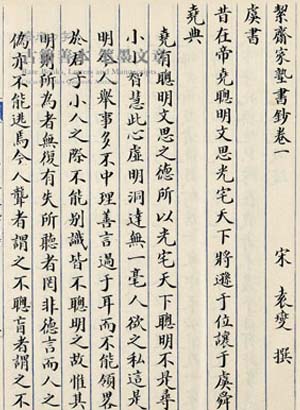 絜齋家塾書鈔卷一
宋 袁燮 撰
虞書
昔在帝堯聰明文思光宅天下將遜于位讓于虞舜
堯典
堯有聰明文思之德所以光宅天下聰明不是尋
小小智慧此心虛明洞達無一毫人欲之私這是
明人舉事多不中理善言過于耳而不能領畧
於君子小人之際不能別識皆不聰明之故惟其
明則所為者無復有失所聽者罔非德言而人之
偽亦不能逃焉今人聾者謂之不聰盲者謂之不
古籍善本 筆墨文章